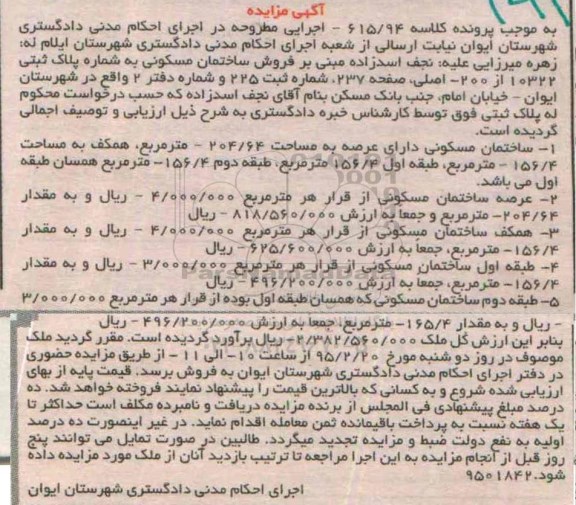 آگهی مزایده
به موجب پرونده کلاسه ۶۱۵/۹۴ - اجرایی مطروحه در اجرای احکام مدنی دادگستری
شهرستان ایوان نیابت ارسالی از شعبه اجرای احکام مدنی دادگستری شهرستان ایلام له:
زهره میرزایی علیه: نجف اسدزاده مبنی بر فروش ساختمان مسکونی به شماره پلاک ثبتی
۱۰۳۲۲ از ۲۰۰- اصلی، صفحه ۲۳۷، شماره ثبت ۲۲۵ و شماره دفتر ۲ واقع در شهرستان
ایوان - خیابان امام، جنب بانک مسکن بنام آقای نجف اسدزاده که حسب درخواست محکوم
له پلاک ثبتی فوق توسط کارشناس خبره دادگستری به شرح ذیل ارزیابی و توصیف اجمالی
گردیده است.
۱- ساختمان مسکونی دارای عرصه به مساحت ۲۰۴/۶۴ - مترمربع، همکف به مساحت
۱۵۶/۴ - مترمربع، طبقه اول ۱۵۶/۴ مترمربع، طبقه دوم ۱۵۶/۴- مترمربع همسان طبقه
اول می باشد.
۲- عرصه ساختمان مسکونی از قرار هر مترمربع ۴/۰۰۰/۰۰۰ - ریال و به مقدار
۲۰۴/۶۴- مترمربع و جمعاً به ارزش ۸۱۸/۵۶۰/۰۰۰ - ریال
۳- همکف ساختمان مسکونی از قرار هر مترمربع ۴/۰۰۰/۰۰۰ - ریال و به مقدار
۱۵۶/۴- مترمربع، جمعاً به ارزش ۶۲۵/۶۰۰/۰۰۰ - ریال
۴- طبقه اول ساختمان مسکونی از قرار هر مترمربع ۳/۰۰۰/۰۰۰ - ریال و به مقدار
۱۵۶/۴- مترمربع، جمعاً به ارزش ۴۹۶/۲۰۰/۰۰۰ - ریال
۵- طبقه دوم ساختمان مسکونی که همسان طبقه اول بوده از قرار هر مترمربع ۳/۰۰۰/۰۰۰
- ریال و به مقدار ۱۶۵/۴- مترمربع، جمعاً به ارزش ۴۹۶/۲۰۰/۰۰۰ - ریال
بنابر این ارزش کل ملک ۲/۳۸۲/۵۶۰/۰۰۰- ریال برآورد گردیده است. مقرر گردید ملک
موصوف در روز دو شنبه مورخ ۹۵/۲/۲۰ از ساعت ۱۰- الی ۱۱ - از طریق مزایده حضوری
در دفتر اجرای احکام مدنی دادگستری شهرستان ایوان به فروش برسد. قیمت پایه از بهای
ارزیابی شده شروع و به کسانی که بالاترین قیمت را پیشنهاد نمایند فروخته خواهد شد. ده
درصد مبلغ پیشنهادی فی المجلس از برنده مزایده دریافت و نامبرده مکلف است حداکثر تا
یک هفته نسبت به پرداخت باقیمانده ثمن معامله اقدام نماید. در غیر اینصورت ده درصد
اولیه به نفع دولت ضبط و مزایده تجدید میگردد. طالبین در صورت تمایل می توانند پنج
روز قبل از انجام مزایده به این اجرا مراجعه تا ترتیب بازدید آنان از ملک مورد مزایده داده
شود. ۹۵۰۱۸۴۲
اجرای احکام مدنی دادگستری شهرستان ایوان